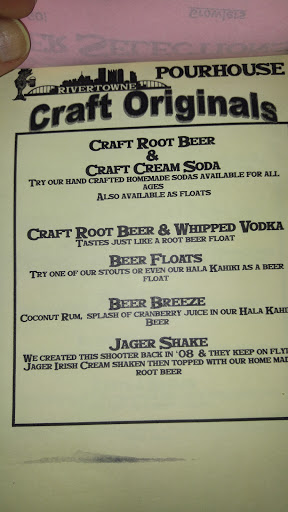 RIVERTOWNE
POURHOUSE
Craft Originals
CRAFT ROOT BEER
&
CRAFT CREAM SODA
TRY OUR HAND CRAFTED HOMEMADE SODAS AVAILABLE FOR ALL
AGES
ALSO AVAILABLE AS FLOATS
CRAFT ROOT BEER & WHIPPED VODKA
TASTES JUST LIKE A ROOT BEER FLOAT
BEER FLOATS
TRY ONE OF OUR STOUTS OR EVEN OUR HALA KAHIKI AS A BEER
FLOAT
BEER BREEZE
COCONUT RUM, SPLASH OF CRANBERRY JUICE IN OUR HALA KAHIKI
BEER
JAGER SHAKE
WE CREATED THIS SHOOTER BACK IN '08 & THEY KEEP ON FLYI
JAGER IRISH CREAM SHAKEN THEN TOPPED WITH OUR HOME MAD
ROOT BEER